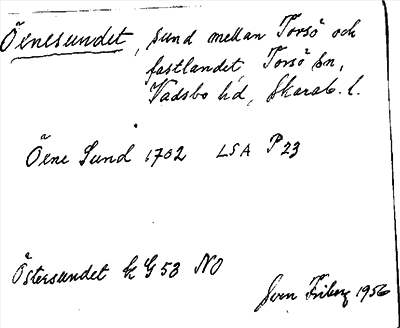 Öenesundet, sund mellan Torsö och
fastlandet, Torsö sn,
Vadsbo hd, Skarab. l.
Öene Sund 1702 LSA P23
Östersundet k G53 NO
Sven Friberg 1956